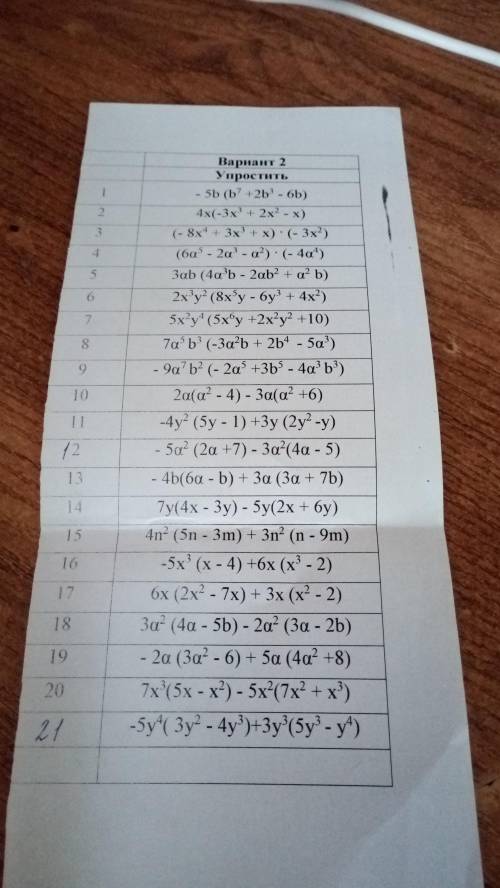 Вариант 2
Упростить
1 - 5b (b⁷ +2b³ - 6b)
2 4x(-3x³ + 2x² - x)
3 (- 8x⁴ + 3x³ + x) · (- 3x²)
4 (6α⁵ - 2α³ - α²) · (- 4α⁴)
5 3αb (4α³b - 2αb² + α² b)
6 2x³y² (8x⁵y - 6y³ + 4x²)
7 5x²y⁴ (5x⁶y +2x²y² +10)
8 7α⁵ b³ (-3α²b + 2b⁴ - 5α³)
9 - 9α⁷ b² (- 2α⁵ +3b⁵ - 4α³ b³)
10 2α(α² - 4) - 3α(α² +6)
11 -4y² (5y - 1) +3y (2y² -y)
12 - 5α² (2α +7) - 3α²(4α - 5)
13 - 4b(6α - b) + 3α (3α + 7b)
14 7y(4x - 3y) - 5y(2x + 6y)
15 4n² (5n - 3m) + 3n² (n - 9m)
16 -5x³ (x - 4) +6x (x³ - 2)
17 6x (2x² - 7x) + 3x (x² - 2)
18 3α² (4α - 5b) - 2α² (3α - 2b)
19 - 2α (3α² - 6) + 5α (4α² +8)
20 7x³(5x - x²) - 5x²(7x² + x³)
21 -5y⁴( 3y² - 4y³)+3y³(5y³ - y⁴)